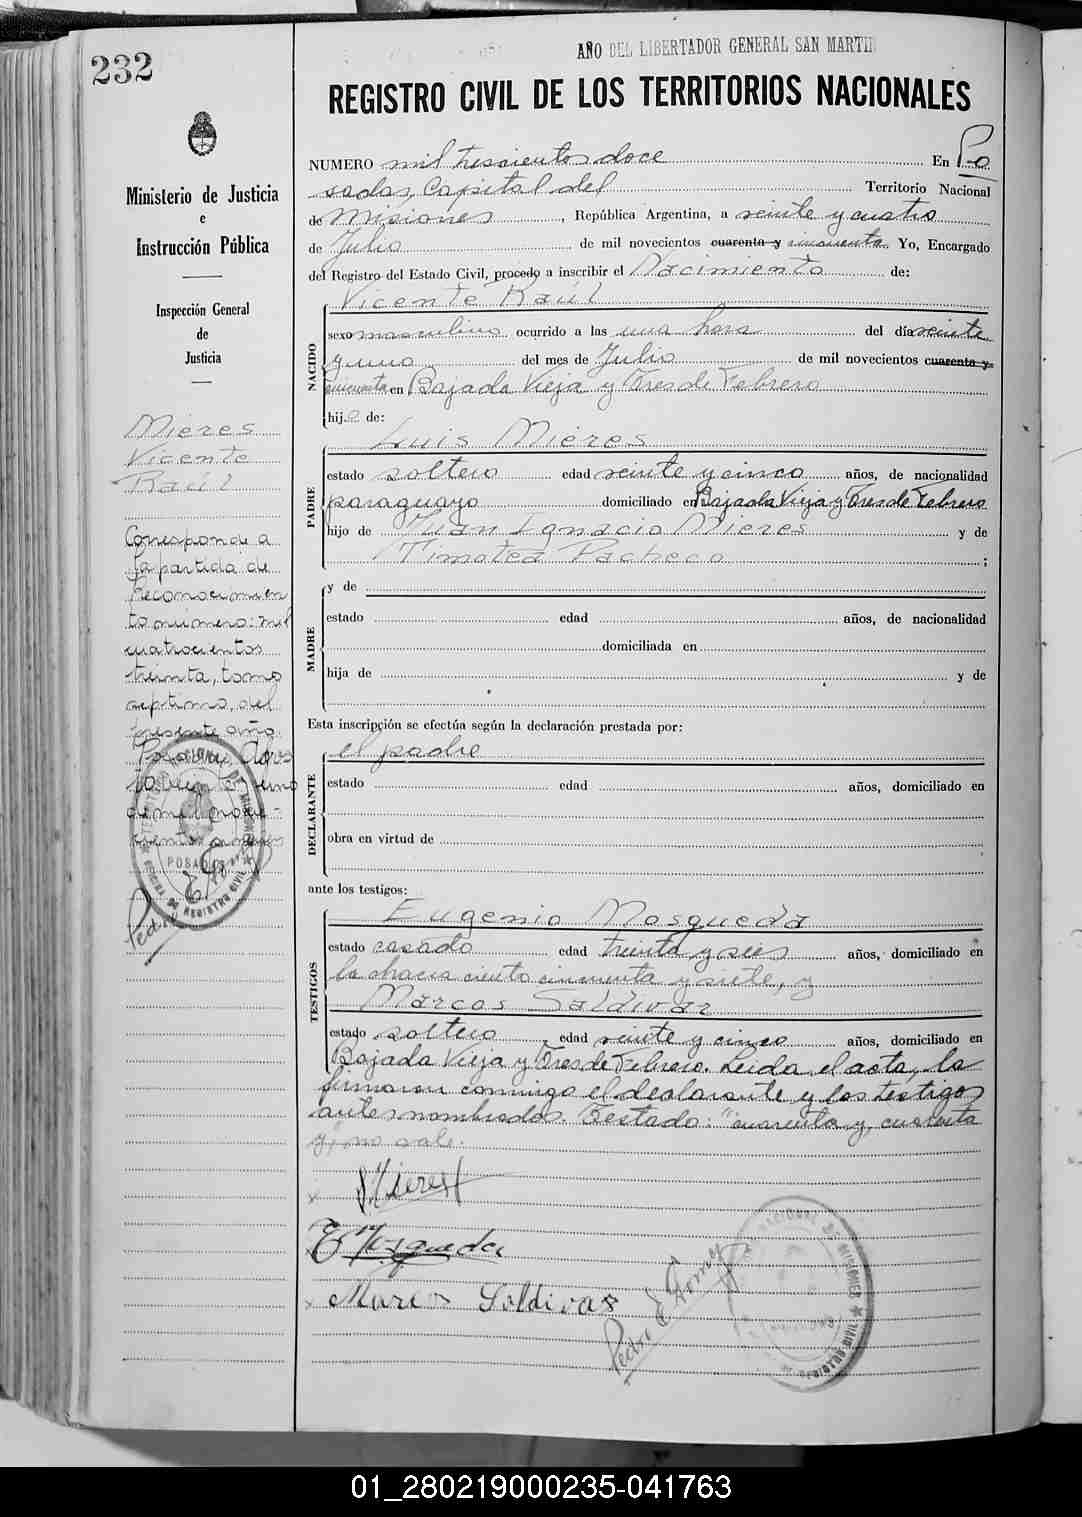 232
Ministerio de Justicia
e
Instrucción Pública
Inspección General
de
Justicia
Mieres
Vicente
Raúl
Corresponde a
la partida de
Reconocimien
to número: mil
cuatrocientos
treinta, tomo
septimo, del
presente año.
Posadas, Agos
to veinte y uno
de mil nove-
cientos
POSADAS
OFICINA DE REGISTRO CIVIL
Pedro
AÑO DEL LIBERTADOR GENERAL SAN MARTIN
REGISTRO CIVIL DE LOS TERRITORIOS NACIONALES
NUMERO mil trescientos doce En Po
sadas, Capital del Territorio Nacional
de Misiones, República Argentina, a veinte y cuatro
de Julio de mil novecientos cuarenta y cincuenta. Yo, Encargado
del Registro del Estado Civil, procedo a inscribir el Nacimiento de:
NACIDO
Vicente Raúl
sexo masculino ocurrido a las una hora del día veinte
y uno del mes de Julio de mil novecientos cuarenta y
cincuenta en Bajada Vieja y Tres de Febrero
hijo de:
PADRE
Luis Mieres
estado soltero edad veinte y cinco años, de nacionalidad
paraguayo domiciliado en Bajada Vieja y Tres de Febrero
hijo de Juan Ignacio Mieres y de
Timotea Pacheco ;
MADRE
y de
estado edad años, de nacionalidad
domiciliada en
hija de y de
Esta inscripción se efectúa según la declaración prestada por:
DECLARANTE
el padre
estado edad años, domiciliado en
obra en virtud de
ante los testigos:
TESTIGOS
Eugenio Mosqueda
estado casado edad treinta y seis años, domiciliado en
la chacra ciento cincuenta y siete, y
Marcos Saldivar
estado soltero edad veinte y cinco años, domiciliado en
Bajada Vieja y Tres de Febrero. Leida el acta, la
firmaron conmigo el declarante y los testigos
antes nombrados. Testado: "cuarenta y, cuarenta
y," no vale.
Mieres
E Mosqueda
Marcos Saldivar
Pedro Gomez
REGISTRO CIVIL
01_280219000235-041763